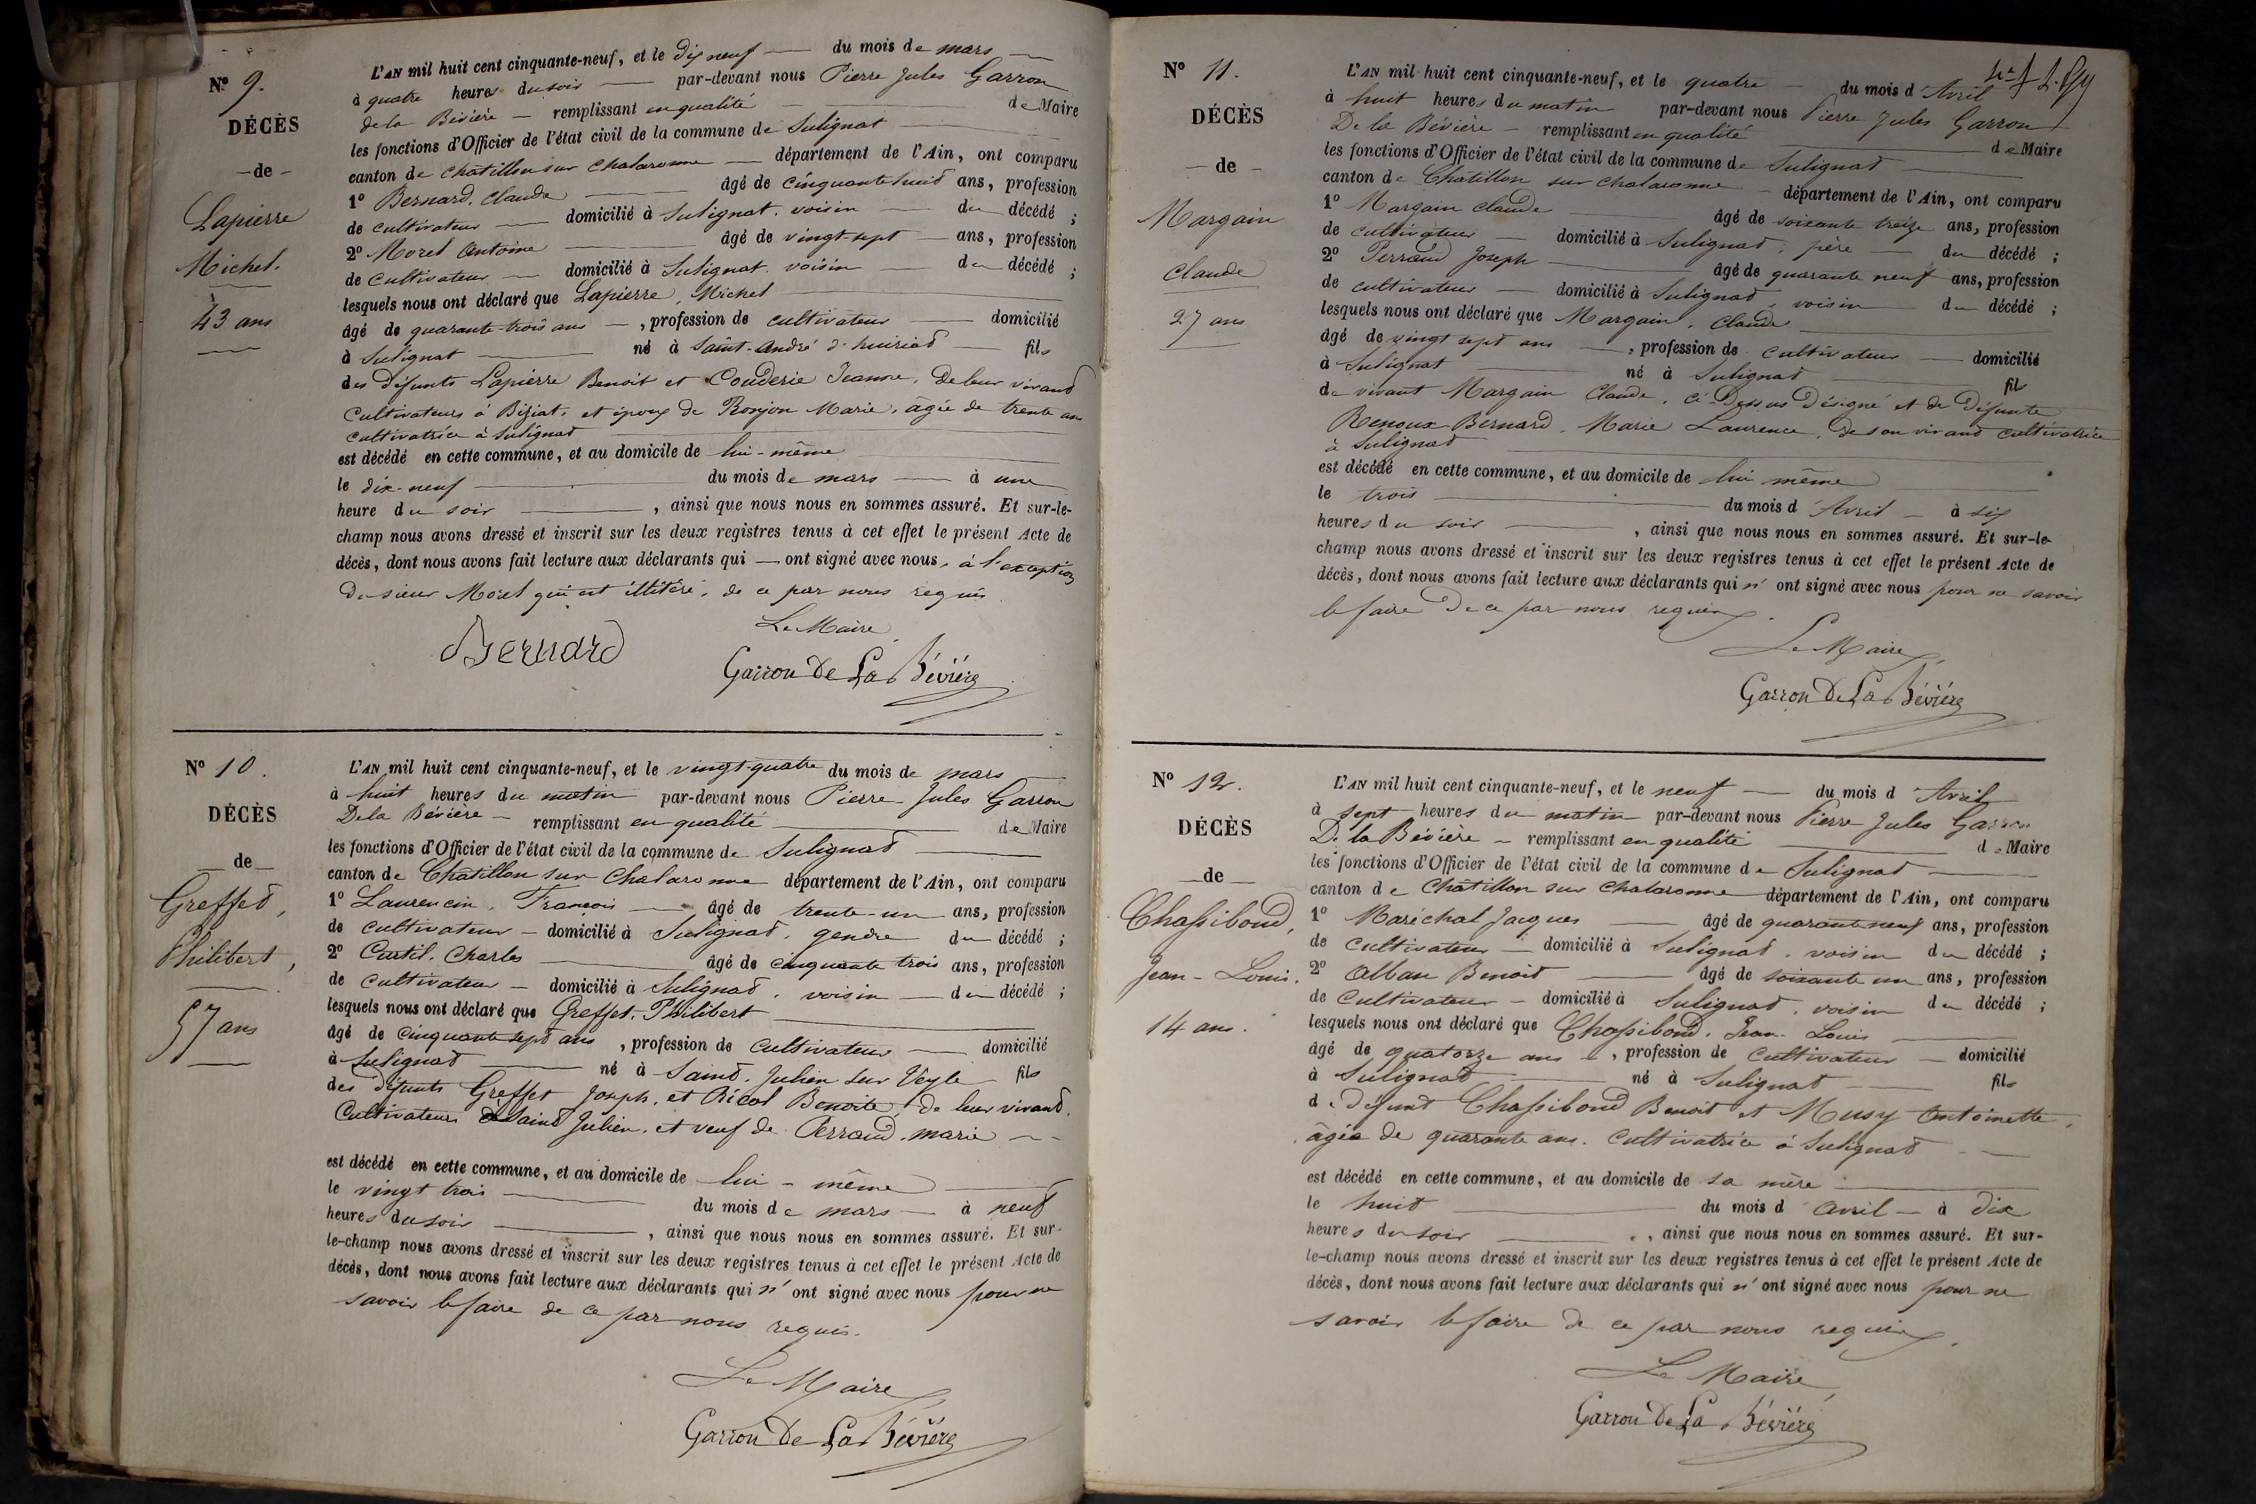 Nº 9.
DÉCÈS
de
Lapierre
Michel.
43 ans
L'AN mil huit cent cinquante-neuf, et le dix neuf du mois de mars
à quatre heures du soir par-devant nous Pierre Jules Garron
de la Bévière remplissant en qualité de Maire
les fonctions d'Officier de l'état civil de la commune de Sulignat
canton de Châtillon sur Chalaronne département de l'Ain, ont comparu
1º Bernard, Claude âgé de cinquante huit ans, profession
de cultivateur domicilié à Sulignat, voisin du décédé ;
2º Morel Antoine âgé de vingt-sept ans, profession
de cultivateur domicilié à Sulignat, voisin du décédé ;
lesquels nous ont déclaré que Lapierre, Michel
âgé de quarante-trois ans, profession de cultivateur domicilié
à Sulignat né à Saint-André d'huiriat fils
des défunts Lapierre Benoit et Couderie Jeanne, de leur vivant
cultivateurs à Biziat, et époux de Ronjon Marie, âgée de trente ans
cultivatrice à Sulignat
est décédé en cette commune, et au domicile de lui-même
le dix-neuf du mois de mars à une
heure du soir, ainsi que nous nous en sommes assuré. Et sur-le-
champ nous avons dressé et inscrit sur les deux registres tenus à cet effet le présent Acte de
décès, dont nous avons fait lecture aux déclarants qui ont signé avec nous, à l'exception
du sieur Morel qui est illitéré, de ce par nous requis
Le Maire
Bernard
Garron De La Bévière
Nº 10.
DÉCÈS
de
Greffet,
Philibert,
57 ans
L'AN mil huit cent cinquante-neuf, et le vingt-quatre du mois de mars
à huit heures du matin par-devant nous Pierre Jules Garron
De la Bévière remplissant en qualité de Maire
les fonctions d'Officier de l'état civil de la commune de Sulignat
canton de Châtillon sur Chalaronne département de l'Ain, ont comparu
1º Laurencin, François âgé de trente-un ans, profession
de cultivateur domicilié à Sulignat, gendre du décédé ;
2º Cutil, Charles âgé de cinquante trois ans, profession
de cultivateur domicilié à Sulignat, voisin du décédé ;
lesquels nous ont déclaré que Greffet, Philibert
âgé de cinquante sept ans, profession de cultivateur domicilié
à Sulignat né à Saint Julien sur Veyle fils
des défunts Greffet Joseph, et Ricol Benoite, de leur vivant
Cultivateurs à Saint Julien, et veuf de Perraud, marie
est décédé en cette commune, et au domicile de lui-même
le vingt trois du mois de mars à neuf
heures du soir, ainsi que nous nous en sommes assuré. Et sur-
le-champ nous avons dressé et inscrit sur les deux registres tenus à cet effet le présent Acte de
décès, dont nous avons fait lecture aux déclarants qui n'ont signé avec nous pour ne
savoir le faire de ce par nous requis.
Le Maire
Garron De La Bévière
Nº 11.
DÉCÈS
de
Margain
Claude
27 ans
L'AN mil huit cent cinquante-neuf, et le quatre du mois d'Avril
à huit heures du matin par-devant nous Pierre Jules Garron
De la Bévière remplissant en qualité de Maire
les fonctions d'Officier de l'état civil de la commune de Sulignat
canton de Châtillon sur Chalaronne département de l'Ain, ont comparu
1º Margain Claude âgé de soixante treize ans, profession
de cultivateur domicilié à Sulignat, père du décédé ;
2º Perraud Joseph âgé de quarante neuf ans, profession
de cultivateur domicilié à Sulignat, voisin du décédé ;
lesquels nous ont déclaré que Margain, Claude
âgé de vingt sept ans, profession de cultivateur domicilié
à Sulignat né à Sulignat fils
de vivant Margain Claude, ci-Dessus Désigné et de Défunte
Renoux Bernard, Marie Laurence, de son vivant cultivatrice
à Sulignat
est décédé en cette commune, et au domicile de lui même
le trois du mois d'Avril à six
heures du soir, ainsi que nous nous en sommes assuré. Et sur-le-
champ nous avons dressé et inscrit sur les deux registres tenus à cet effet le présent Acte de
décès, dont nous avons fait lecture aux déclarants qui n'ont signé avec nous pour ne savoir
le faire De ce par nous requis.
Le Maire,
Garron De La Bévière
Nº 12.
DÉCÈS
de
Chassiboud,
Jean-Louis.
14 ans.
L'AN mil huit cent cinquante-neuf, et le neuf du mois d'Avril
à sept heures du matin par-devant nous Pierre Jules Garron
De la Bévière remplissant en qualité de Maire
les fonctions d'Officier de l'état civil de la commune de Sulignat
canton de Châtillon sur Chalaronne département de l'Ain, ont comparu
1º Maréchal Jacques âgé de quarante neuf ans, profession
de cultivateur domicilié à Sulignat, voisin du décédé ;
2º Alban Benoit âgé de soixante un ans, profession
de cultivateur domicilié à Sulignat, voisin du décédé ;
lesquels nous ont déclaré que Chassiboud, Jean Louis
âgé de quatorze ans, profession de cultivateur domicilié
à Sulignat né à Sulignat fils
de Défunt Chassiboud Benoit et Musy Antoinette,
âgée de quarante ans, cultivatrice à Sulignat
est décédé en cette commune, et au domicile de sa mère
le huit du mois d'avril à dix
heures du soir, ainsi que nous nous en sommes assuré. Et sur-
le-champ nous avons dressé et inscrit sur les deux registres tenus à cet effet le présent Acte de
décès, dont nous avons fait lecture aux déclarants qui n'ont signé avec nous pour ne
savoir le faire de ce par nous requis.
Le Maire,
Garron De La Bévière